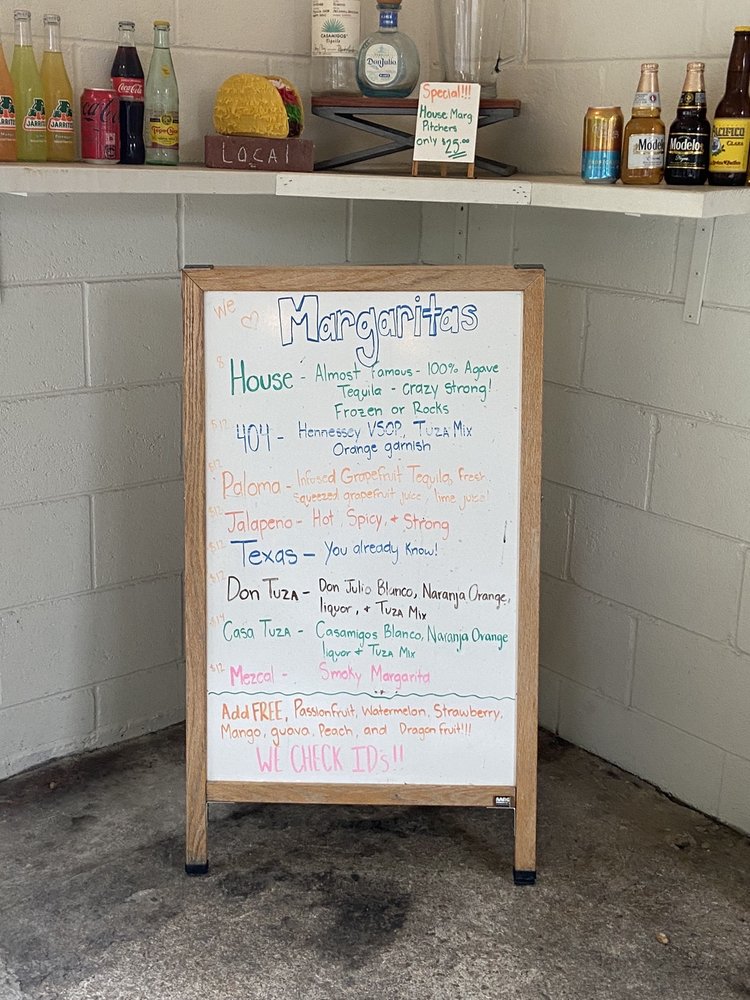 JARRITOS
JARRITOS
JARRITOS
Coca-Cola
Coca-Cola
Topo Chico
CASAMIGOS
Tequila
Don Julio
LOCAL
Special!!!
House Marg
Pitchers
only $25.00
Modelo
Modelo
PACIFICO
CLARA
We ♡ Margaritas
8 House - Almost Famous - 100% Agave
Tequila - crazy strong!
Frozen or Rocks
$12 404 - Hennessey VSOP, TUZA Mix
Orange garnish
$12 Paloma - Infused Grapefruit Tequila, fresh
squeezed grapefruit juice, lime juice!
$12 Jalapeno - Hot, Spicy, + Strong
$12 Texas - You already Know!
$12 Don TUZA - Don Julio Blanco, Naranja Orange,
liquor, + TUZA Mix
$14 Casa TUZA - Casamigos Blanco, Naranja Orange
liquor + TUZA Mix
$12 Mezcal - Smoky Margarita
Add FREE, Passionfruit, Watermelon, Strawberry,
Mango, guava, Peach, and Dragon fruit!!!
WE CHECK IDs!!